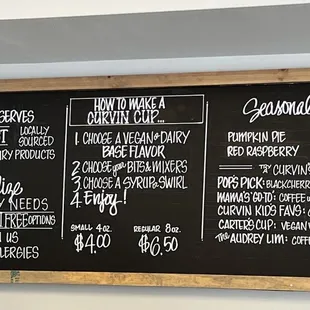 SERVES
LOCALLY
SOURCED
DAIRY PRODUCTS
NEEDS
FREE OPTIONS
US
ALLERGIES
HOW TO MAKE A
CURVIN CUP...
1. CHOOSE A VEGAN or DAIRY
BASE FLAVOR
2. CHOOSE your BITS & MIXERS
3. CHOOSE A SYRUP & SWIRL
4. Enjoy!
SMALL 4oz.
$4.00
REGULAR 8oz.
$6.50
Seasonal
PUMPKIN PIE
RED RASPBERRY
CURVIN
POP'S PICK: BLACK CHER
MAMA'S GO-TO: COFFEE
CURVIN KIDS FAVS:
CARTER'S CUP: VEGAN
THE AUDREY LIM: COFF